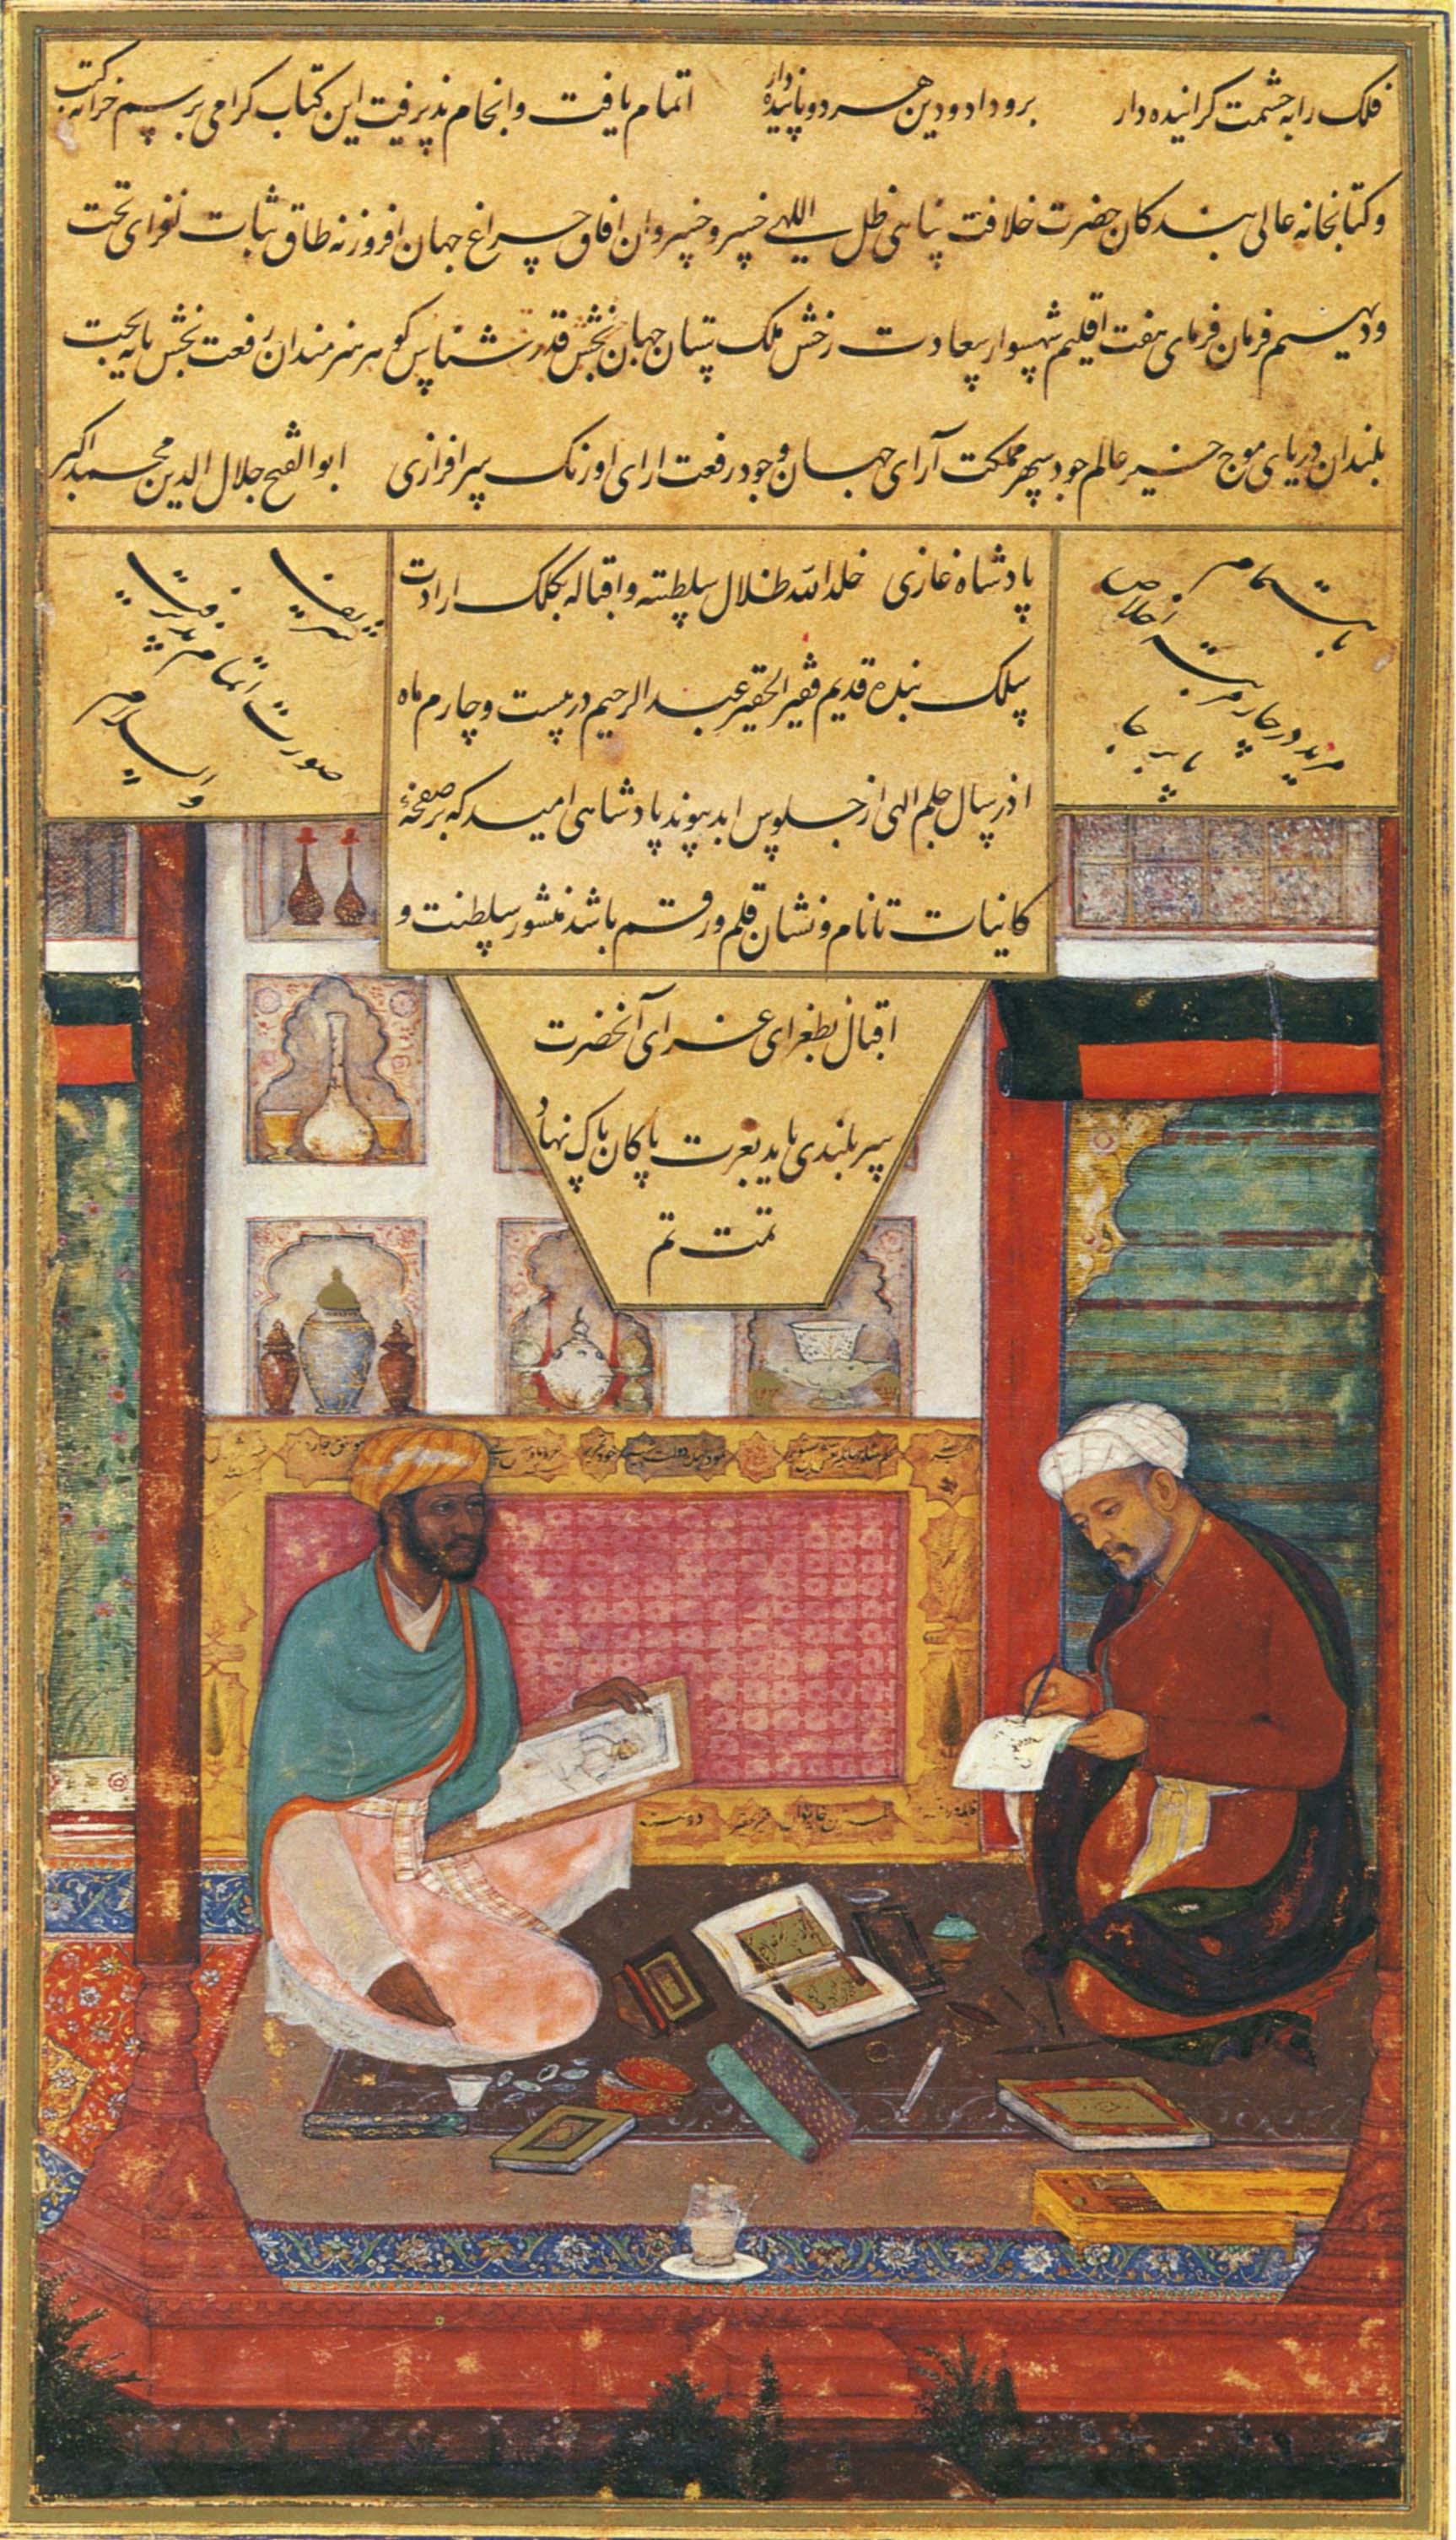 فلک را به حشمت گراینده دار برو داد و دین هر دو پاینده دار اتمام یافت و انجام پذیرفت این کتاب گرامی برسم خزانه کتب
و کتابخانه عالی بندگان حضرت خلافت پناهی ظل اللهی خسرو خسروان افاق چراغ جهان افروز نه طاق ثبات افزای تخت
و دیهیم فرمان فرمای هفت اقلیم شهسوار سعادت رخش ملک ستان جهان بخش قدرشناس گوهر هنرمندان رفعت بخش پایه بخت
بلندان دریای موج خیز عالم جود سپهر مملکت آرای جهان وجود رفعت ارای اورنک سرافرازی ابوالفتح جلال الدین محمد اکبر
پادشاه غازی خلد الله ظلال سلطنته و اقباله بکلک ارادت
سلک بنده قدیم فقیر الحقیر عبد الرحیم در بیست و چارم ماه
اذر سال چلم الهی از جلوس ابد پیوند پادشاهی امید که بر صفحهٔ
کاینات تا نام و نشان قلم و رقم باشد منشور سلطنت و
اقبال بطغرای غرای آنحضرت
سربلندی یابد بعزت پاکان پاک نهاد
تمت تم
باهتمام
مرید در چار مرتبه اخلاص
پا بر جا
شریف
صورت اتمام پذیرفت
والسلام